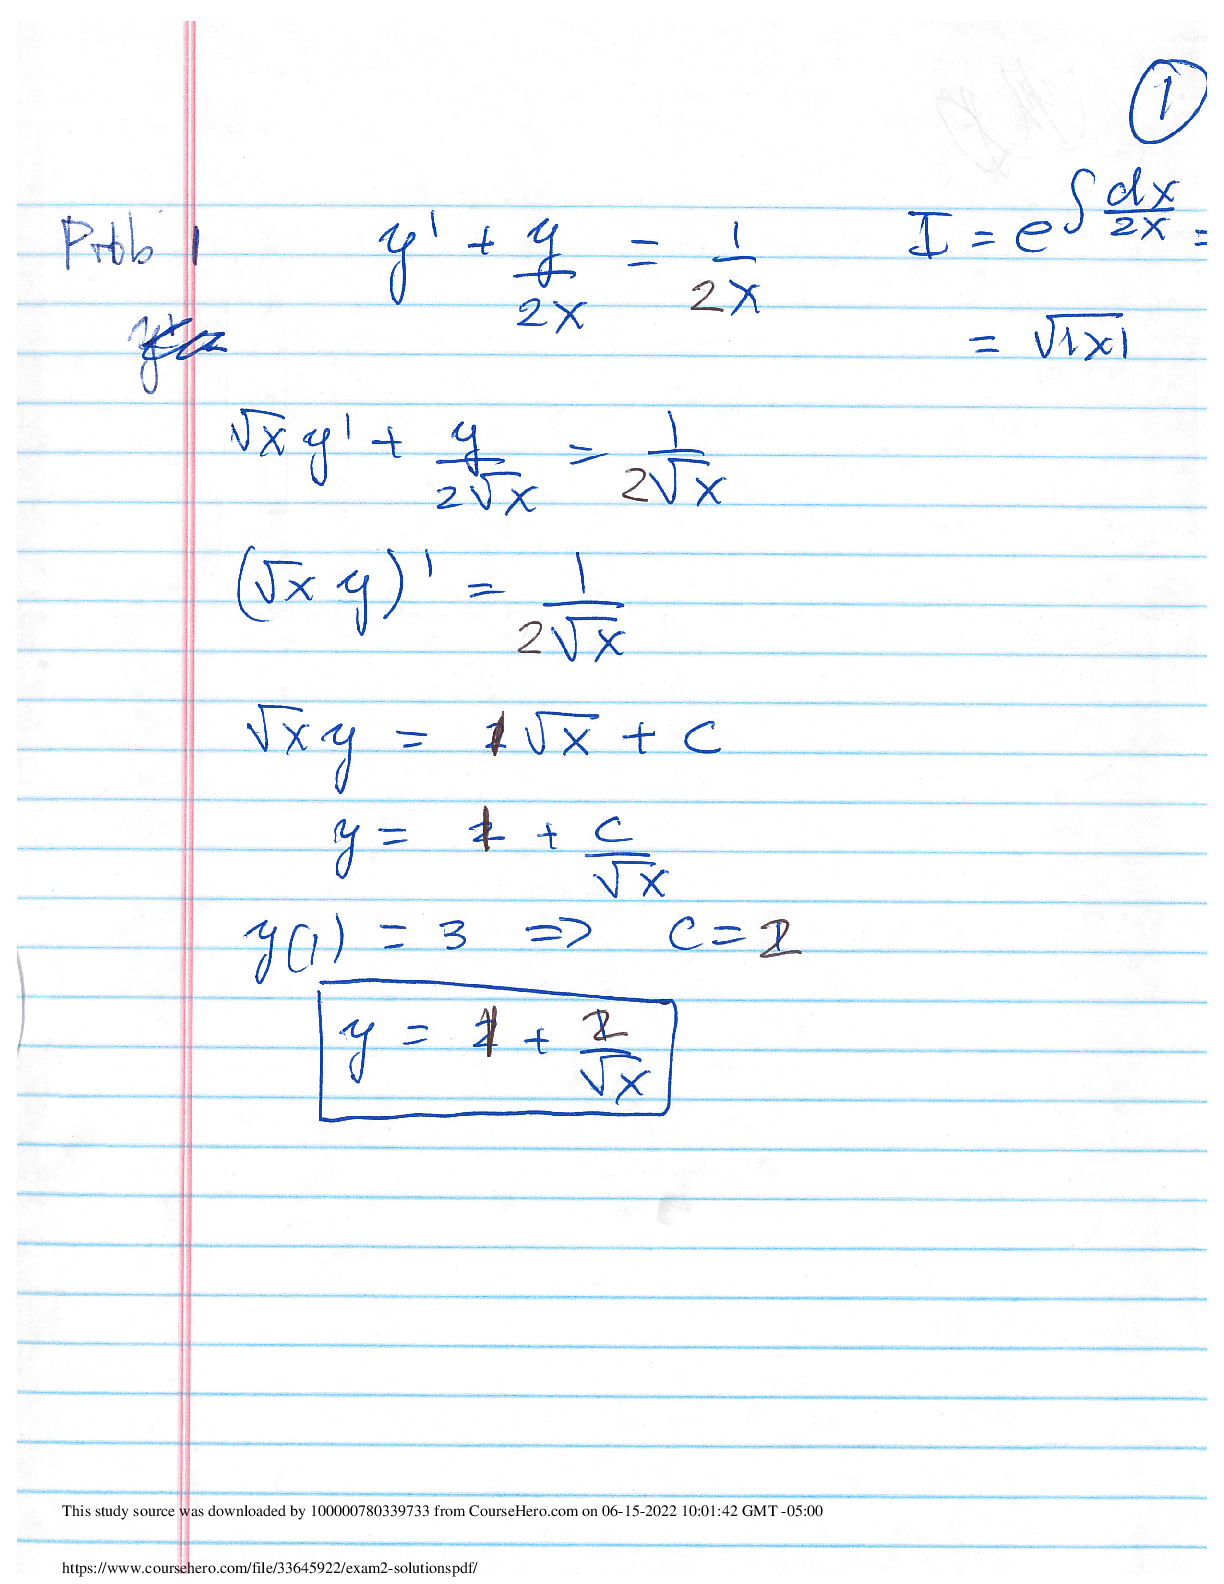 1
Prob 1 y' + y/2x = 1/2x I = e^∫dx/2x =
= √|x|
√x y' + y/2√x = 1/2√x
(√x y)' = 1/2√x
√x y = 1√x + C
y = 1 + C/√x
y(1) = 3 => C = 2
y = 1 + 2/√x
This study source was downloaded by 100000780339733 from CourseHero.com on 06-15-2022 10:01:42 GMT -05:00
https://www.coursehero.com/file/33645922/exam2-solutionspdf/